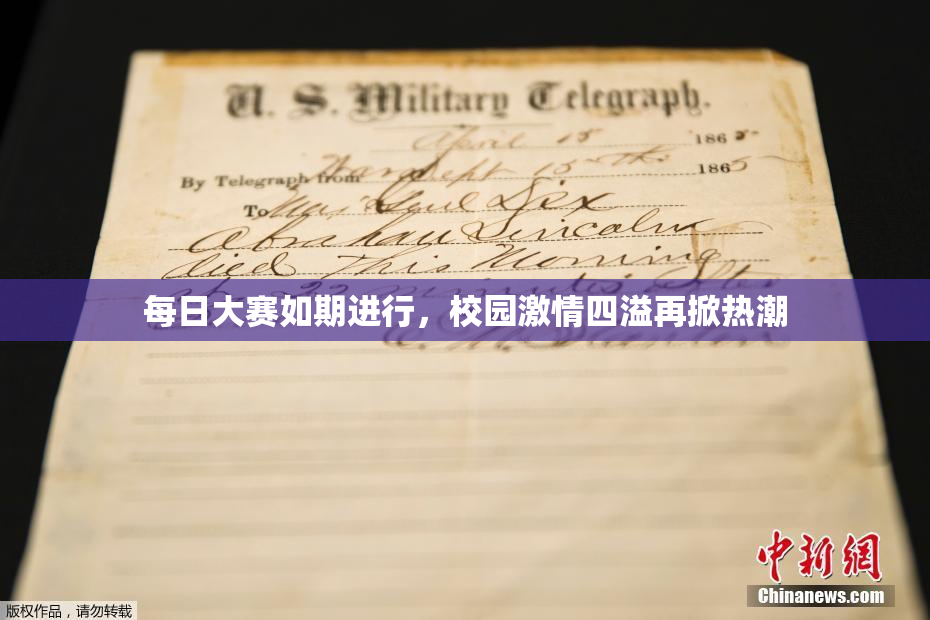 U. S. Military Telegraph.
April 15 1865
By Telegraph from War Dept 15th 1865
To Maj Genl Dix
Abraham Lincoln
died This Morning
at 22 minutes After
每日大赛如期进行，校园激情四溢再掀热潮
E. M. Stanton
中新网
Chinanews.com
版权作品，请勿转载